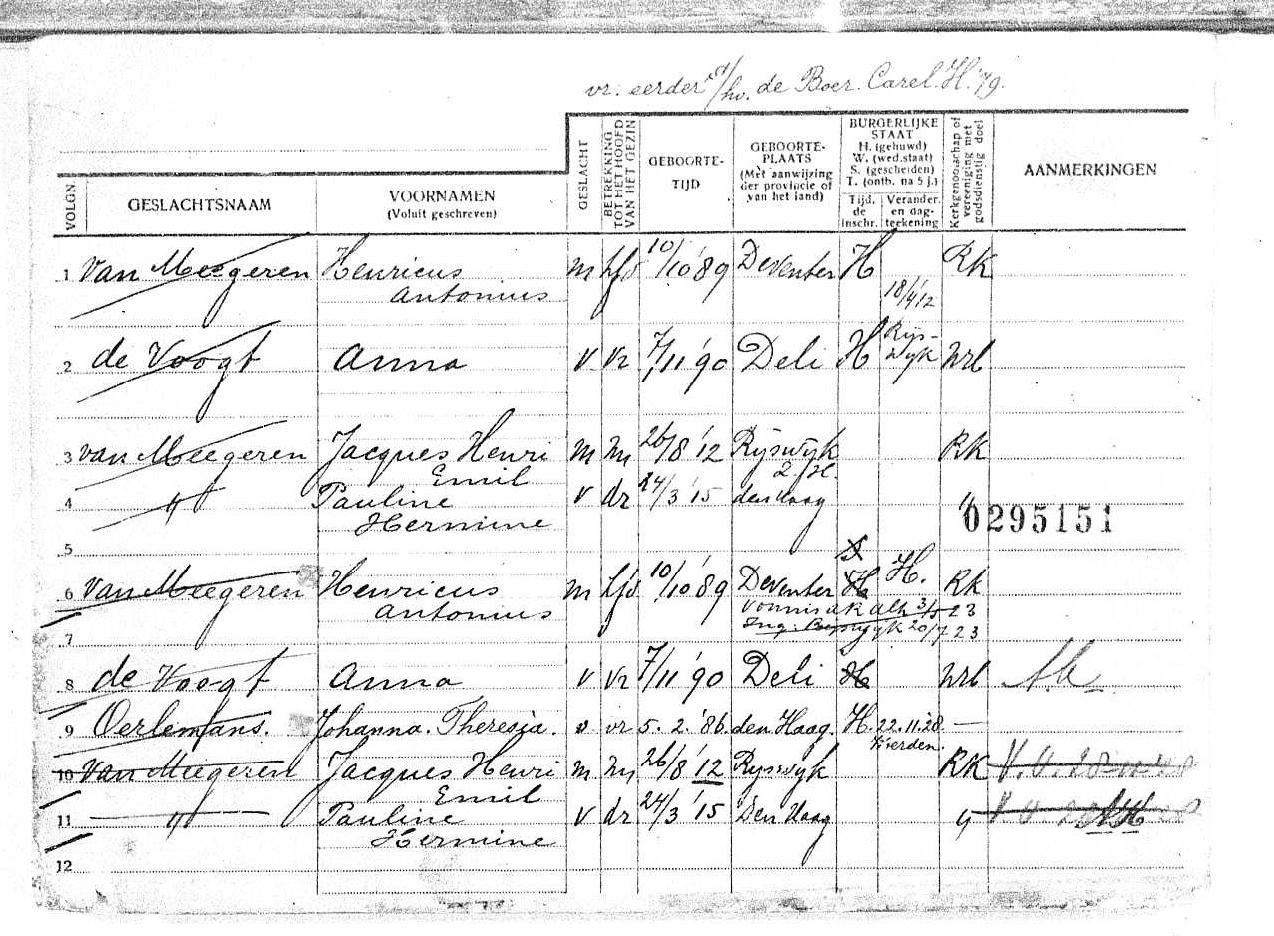 vr. eerder v/hv. de Boer. Carel. H. '79.
VOLGN. GESLACHTSNAAM VOORNAMEN (Voluit geschreven) GESLACHT BETREKKING TOT HET HOOFD VAN HET GEZIN GEBOORTE-TIJD GEBOORTE-PLAATS (Met aanwijzing der provincie of van het land) BURGERLIJKE STAAT H. (gehuwd) W. (wed.staat) S. (gescheiden) T. (ontb. na 5 j.) Tijd. de inschr. Verander. en dag-teekening Kerkgenootschap of vereeniging met godsdienstig doel AANMERKINGEN
1 van Meegeren Henricus m hfd 10/10 '89 Deventer H RK
Antonius 18/4 '12
2 de Voogt Anna v vr 7/11 '90 Deli H Rijs-wijk
3 van Meegeren Jacques Henri m 26/8 '12 Ryswyk RK
Emil Z.H.
4 " Pauline v dr 24/3 '15 den Haag "
Hermine
0295151
5
6 van Meegeren Henricus m hfd 10/10 '89 Deventer H H. RK
Antonius Vonnis 23
Ryswyk 20/7 23
7
8 de Voogt Anna v vr 7/11 '90 Deli H
9 Oerlemans. Johanna. Theresia. v vr 5. 2. '86. den Haag. H. 22.11.28. —
10 van Meegeren Jacques Henri m 26/8 '12 Ryswyk RK
Emil
11 " Pauline v dr 24/3 '15 Den Haag "
Hermine
12